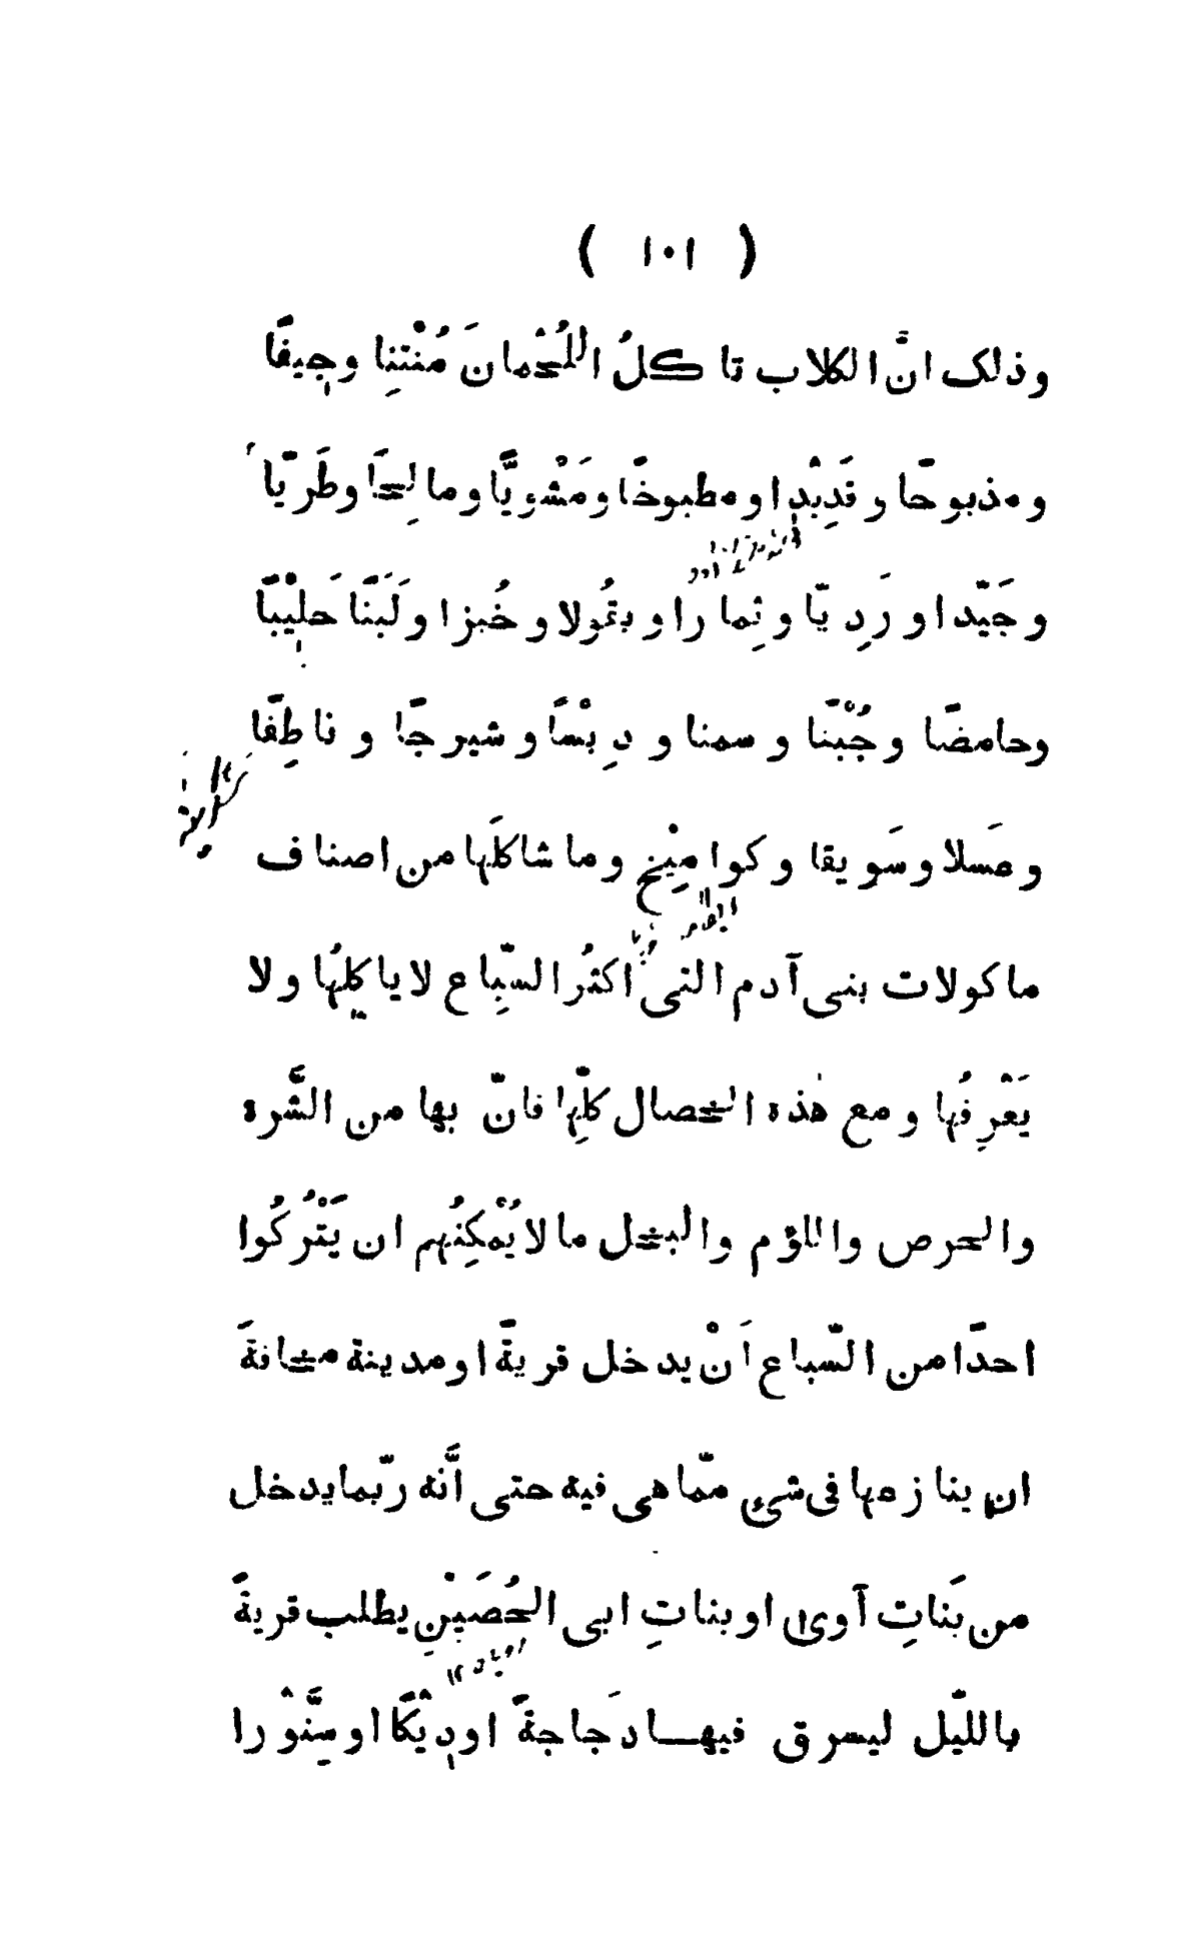 ( ١٠١ )
وذلک انَّ الکلاب تاکلُ اللُحْمانَ مُنْتِنا وجِيفًا
ومذبوحًا وقَدِيْدا ومطبوخًا ومَشْوِيًّا ومالِحًا وطَرِيًّا
وجَيّدا ورَدِيّا وثِمارا وبقُولا وخُبزا ولَبَنًا حَلِيْبًا
وحامضًا وجُبْنًا وسمنا ودِبْسًا وشيرجًا وناطِفًا
وعَسلا وسَويقا وکوامِيْخ وما شاکلَها من اصناف
ماکولات بنی آدم التی اکثرُ السِّباع لایاکلُها ولا
یَعْرِفُها ومع هٰذه الخصال کلِّها فانّ بها من الشَّره
والحرص واللؤم والبخل مالا یُمْکِنُهم ان یَتْرُکُوا
احدًا من السّباع اَنْ یدخل قریةً او مدینة مخافةَ
ان ینازعها فی شیٔ ممّا هی فیه حتی اَنَّه ربّما یدخل
من بَناتِ آوی او بناتِ ابی الحُصَیْنِ یطلب قریةً
باللیّل لیسرق فیها دَجاجةً او دِیْکًا او سِنَّوْرا